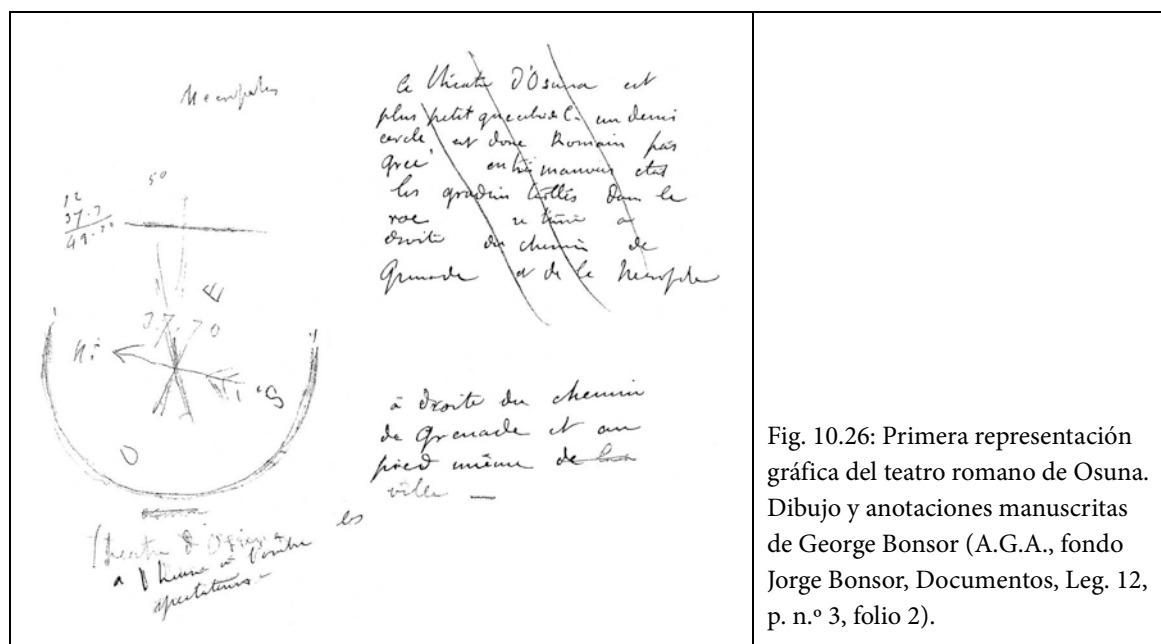 Necropoles
50
12
37.7
49.70
E
37.70
N
S
O
Theatre d'Osuna
a l'heure à l'ombre les
spectateurs
Ce theatre d'Osuna est
plus petit que celui de C. un demi
cercle est donc Romain pas
Grec en très mauvais etat
les gradins taillés dans le
roc a
droite du chemin de
Grenade et de la Necropole
à droite du chemin
de Grenade et au
pied même de la
ville —
Fig. 10.26: Primera representación
gráfica del teatro romano de Osuna.
Dibujo y anotaciones manuscritas
de George Bonsor (A.G.A., fondo
Jorge Bonsor, Documentos, Leg. 12,
p. n.º 3, folio 2).